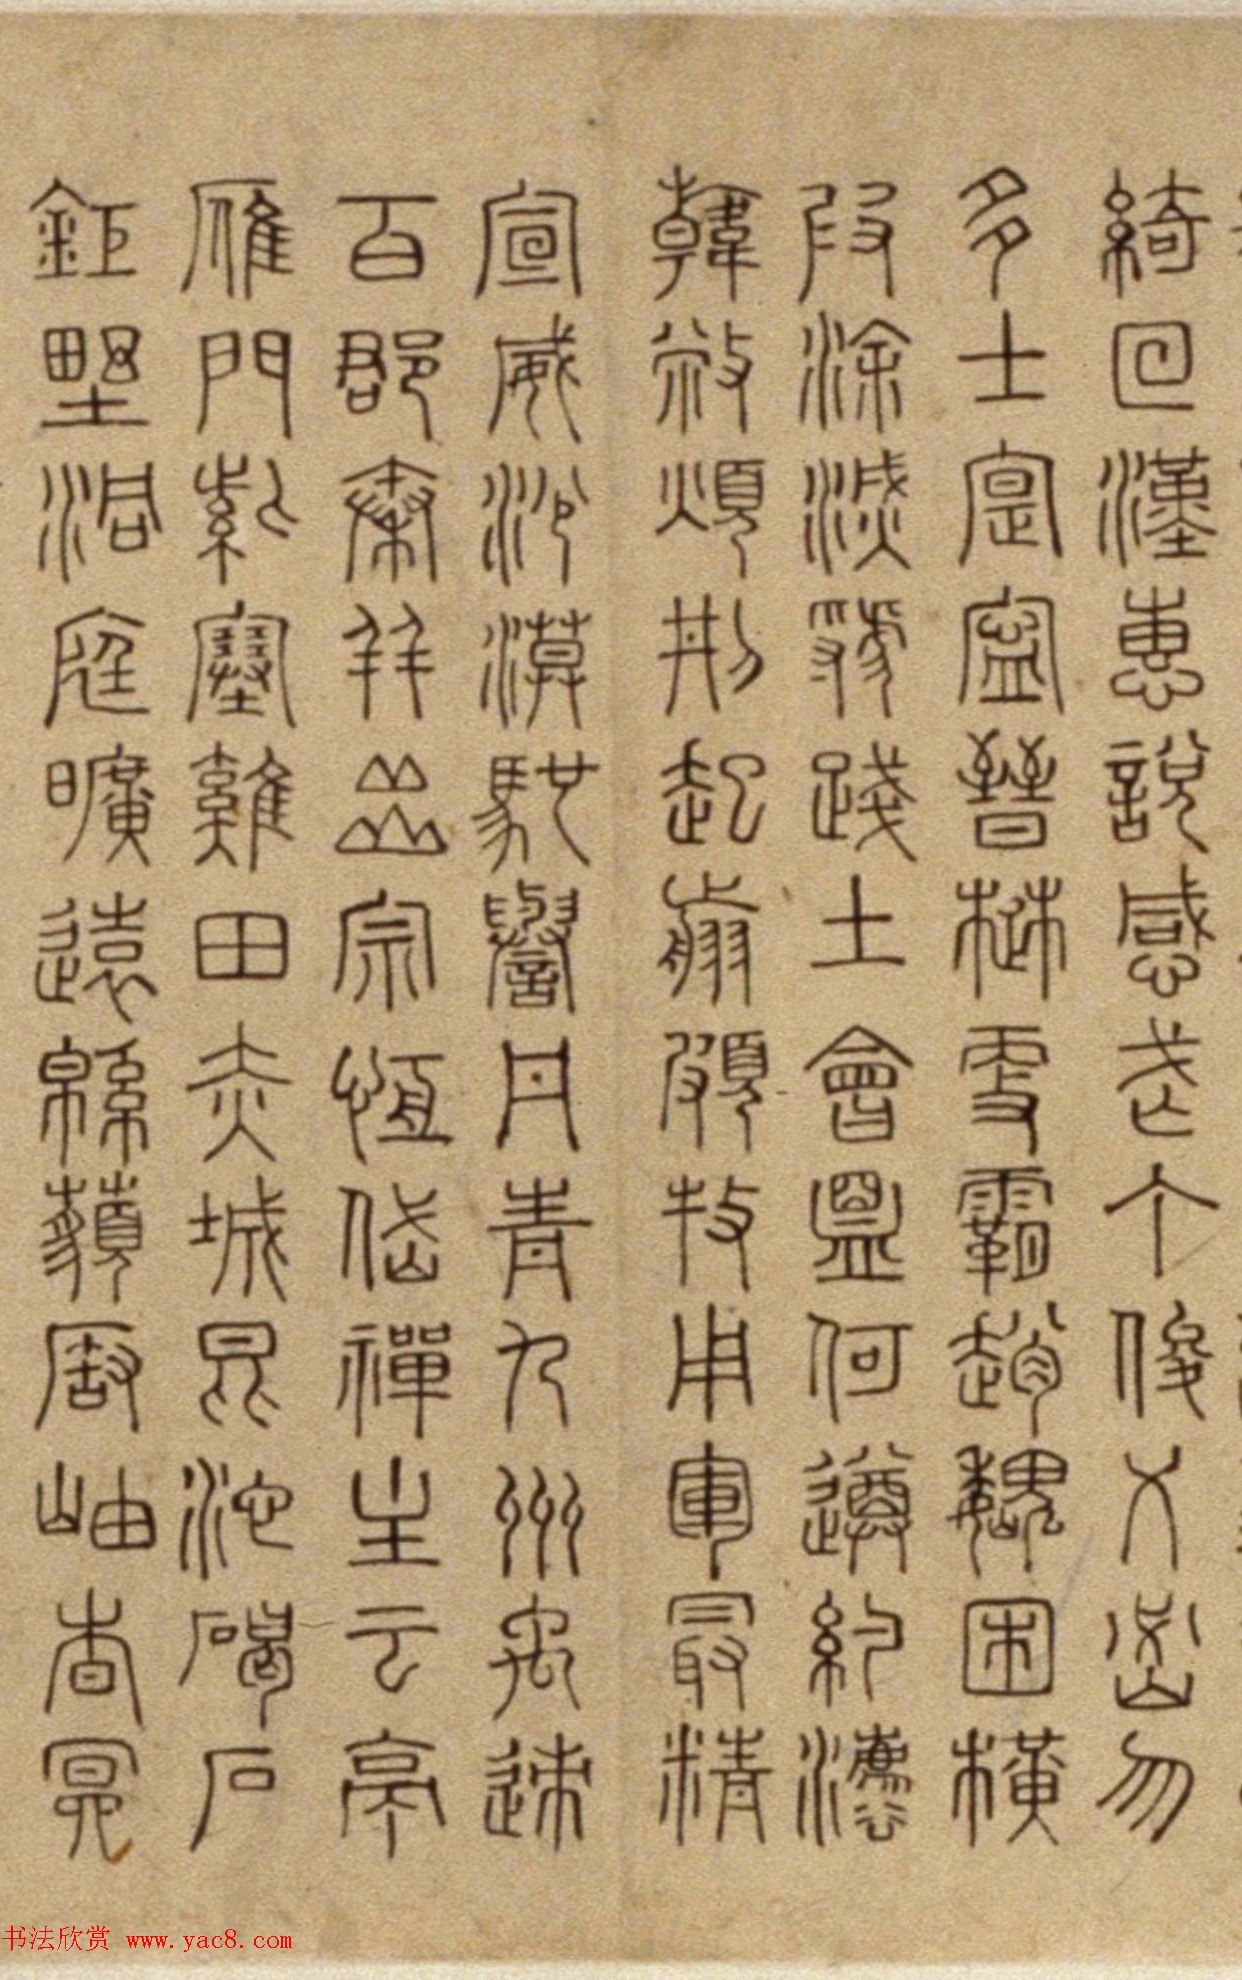 綺回漢惠說感武丁俊乂密勿
多士寔寧晉楚更霸趙魏困橫
叚涂滅虢踐土會盟何遵約灋
韓敝煩刑起翦頗牧用軍最精
宣威沙漠馳譽丹青九州禹迹
百郡秦并嶽宗恒岱禪主云亭
雁門紫塞雞田赤城昆池碣石
鉅野洞庭曠遠緜邈巖岫杳冥
书法欣赏 www.yac8.com